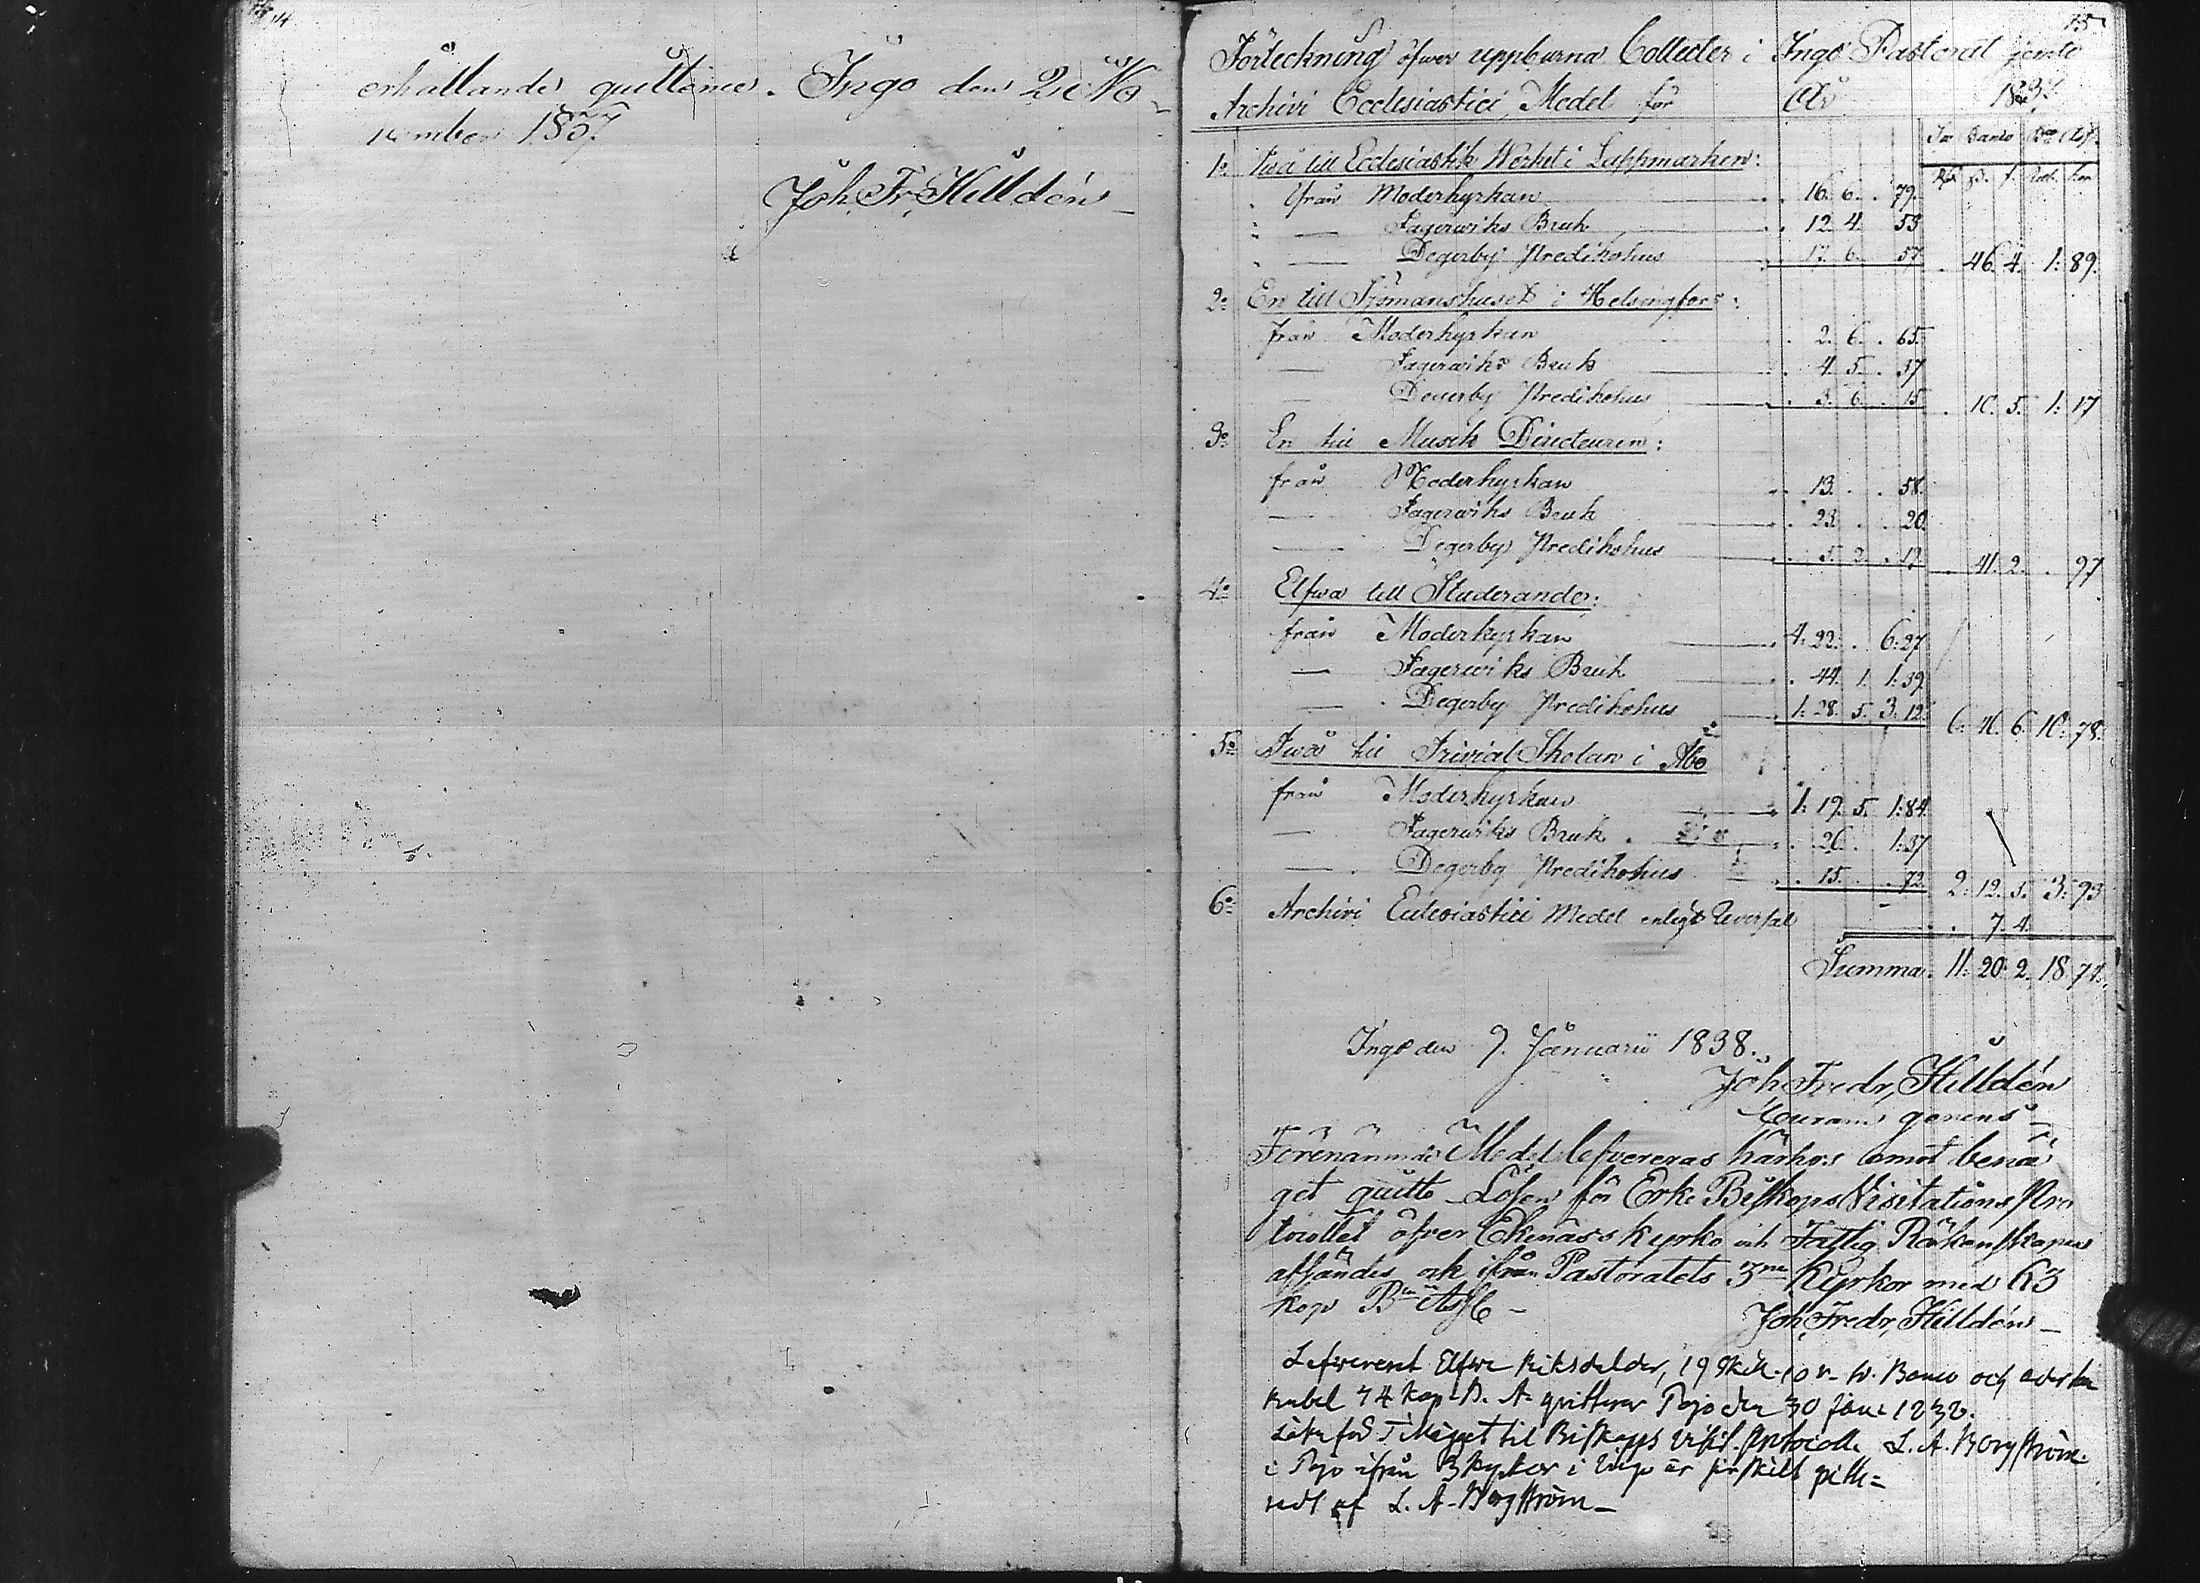 14
erhållande quittence. Ingo den 2 No
vember 1837
Joh. Fr. Hilldén
15
Förteckning öfwer uppburna Collecter i Ingo Pastorat jemte
Archivi Ecclesiastici Medel för År 1837.
1o Två till Ecclesiastik Werket i Lappmarken:
från Moderkyrkan 16. 6. 79.
— Fagerwiks Bruk 12. 4. 53
— Degerby Predikohus 17. 6. 57 46. 4. 1: 89.
2o En till Sjömanshuset i Helsingfors:
från Moderkyrkan 2. 6. 65.
— Fagerwiks Bruk 4. 5. 37
— Degerby Predikohus 3. 6. 15 10. 5. 1: 17
3o En till Musik Directeuren:
från Moderkyrkan 13. 58.
— Fagerwiks Bruk 23. 20.
— Degerby Predikohus 5. 2. 19. 41. 2. 97
4o Elfwa till Studerande:
från Moderkyrkan 4: 22. 6: 27
— Fagerwiks Bruk 44. 1. 1: 39
— Degerby Predikohus 1: 28. 5. 3: 12. 6: 46. 6. 10: 78.
5o Två till Trivial Skolan i Åbo
från Moderkyrkan 1: 19. 5. 1: 84.
— Fagerwiks Bruk 26. 1: 37
— Degerby Predikohus 15. 72. 2: 12. 5. 3: 93
6o Archivi Ecclesiastici Medel enligt Reversal 7. 4.
Summa. 11: 20. 2. 18. 74.
Ingo den 9. Januarii 1838.
Joh. Fredr. Hilldén
Curam gerens
Förenämnde Medel lefvereras härhos emot benä
get quitto Lösen för Erke Biskops Visitations Pro
tocollet öfver Ekenäs kyrko och Fattig Räkenskaper
afsändes ock ifrån Pastoratets 3ne Kyrkor med 63
kop Bco Ass
Joh. Fredr. Hilldén
Lefwererat Elfwa Riksdaler, 19 Sk. Banco och aderton
Rubel 74 kop B. A. quitterar Pojo den 30 Jan. 1838.
til Biskops Visit. Protocoll L. A. Borgström
i Pojo ifrån 3 kyrkor i Ingo är särskilt qvitte=
radt af L. A. Borgström